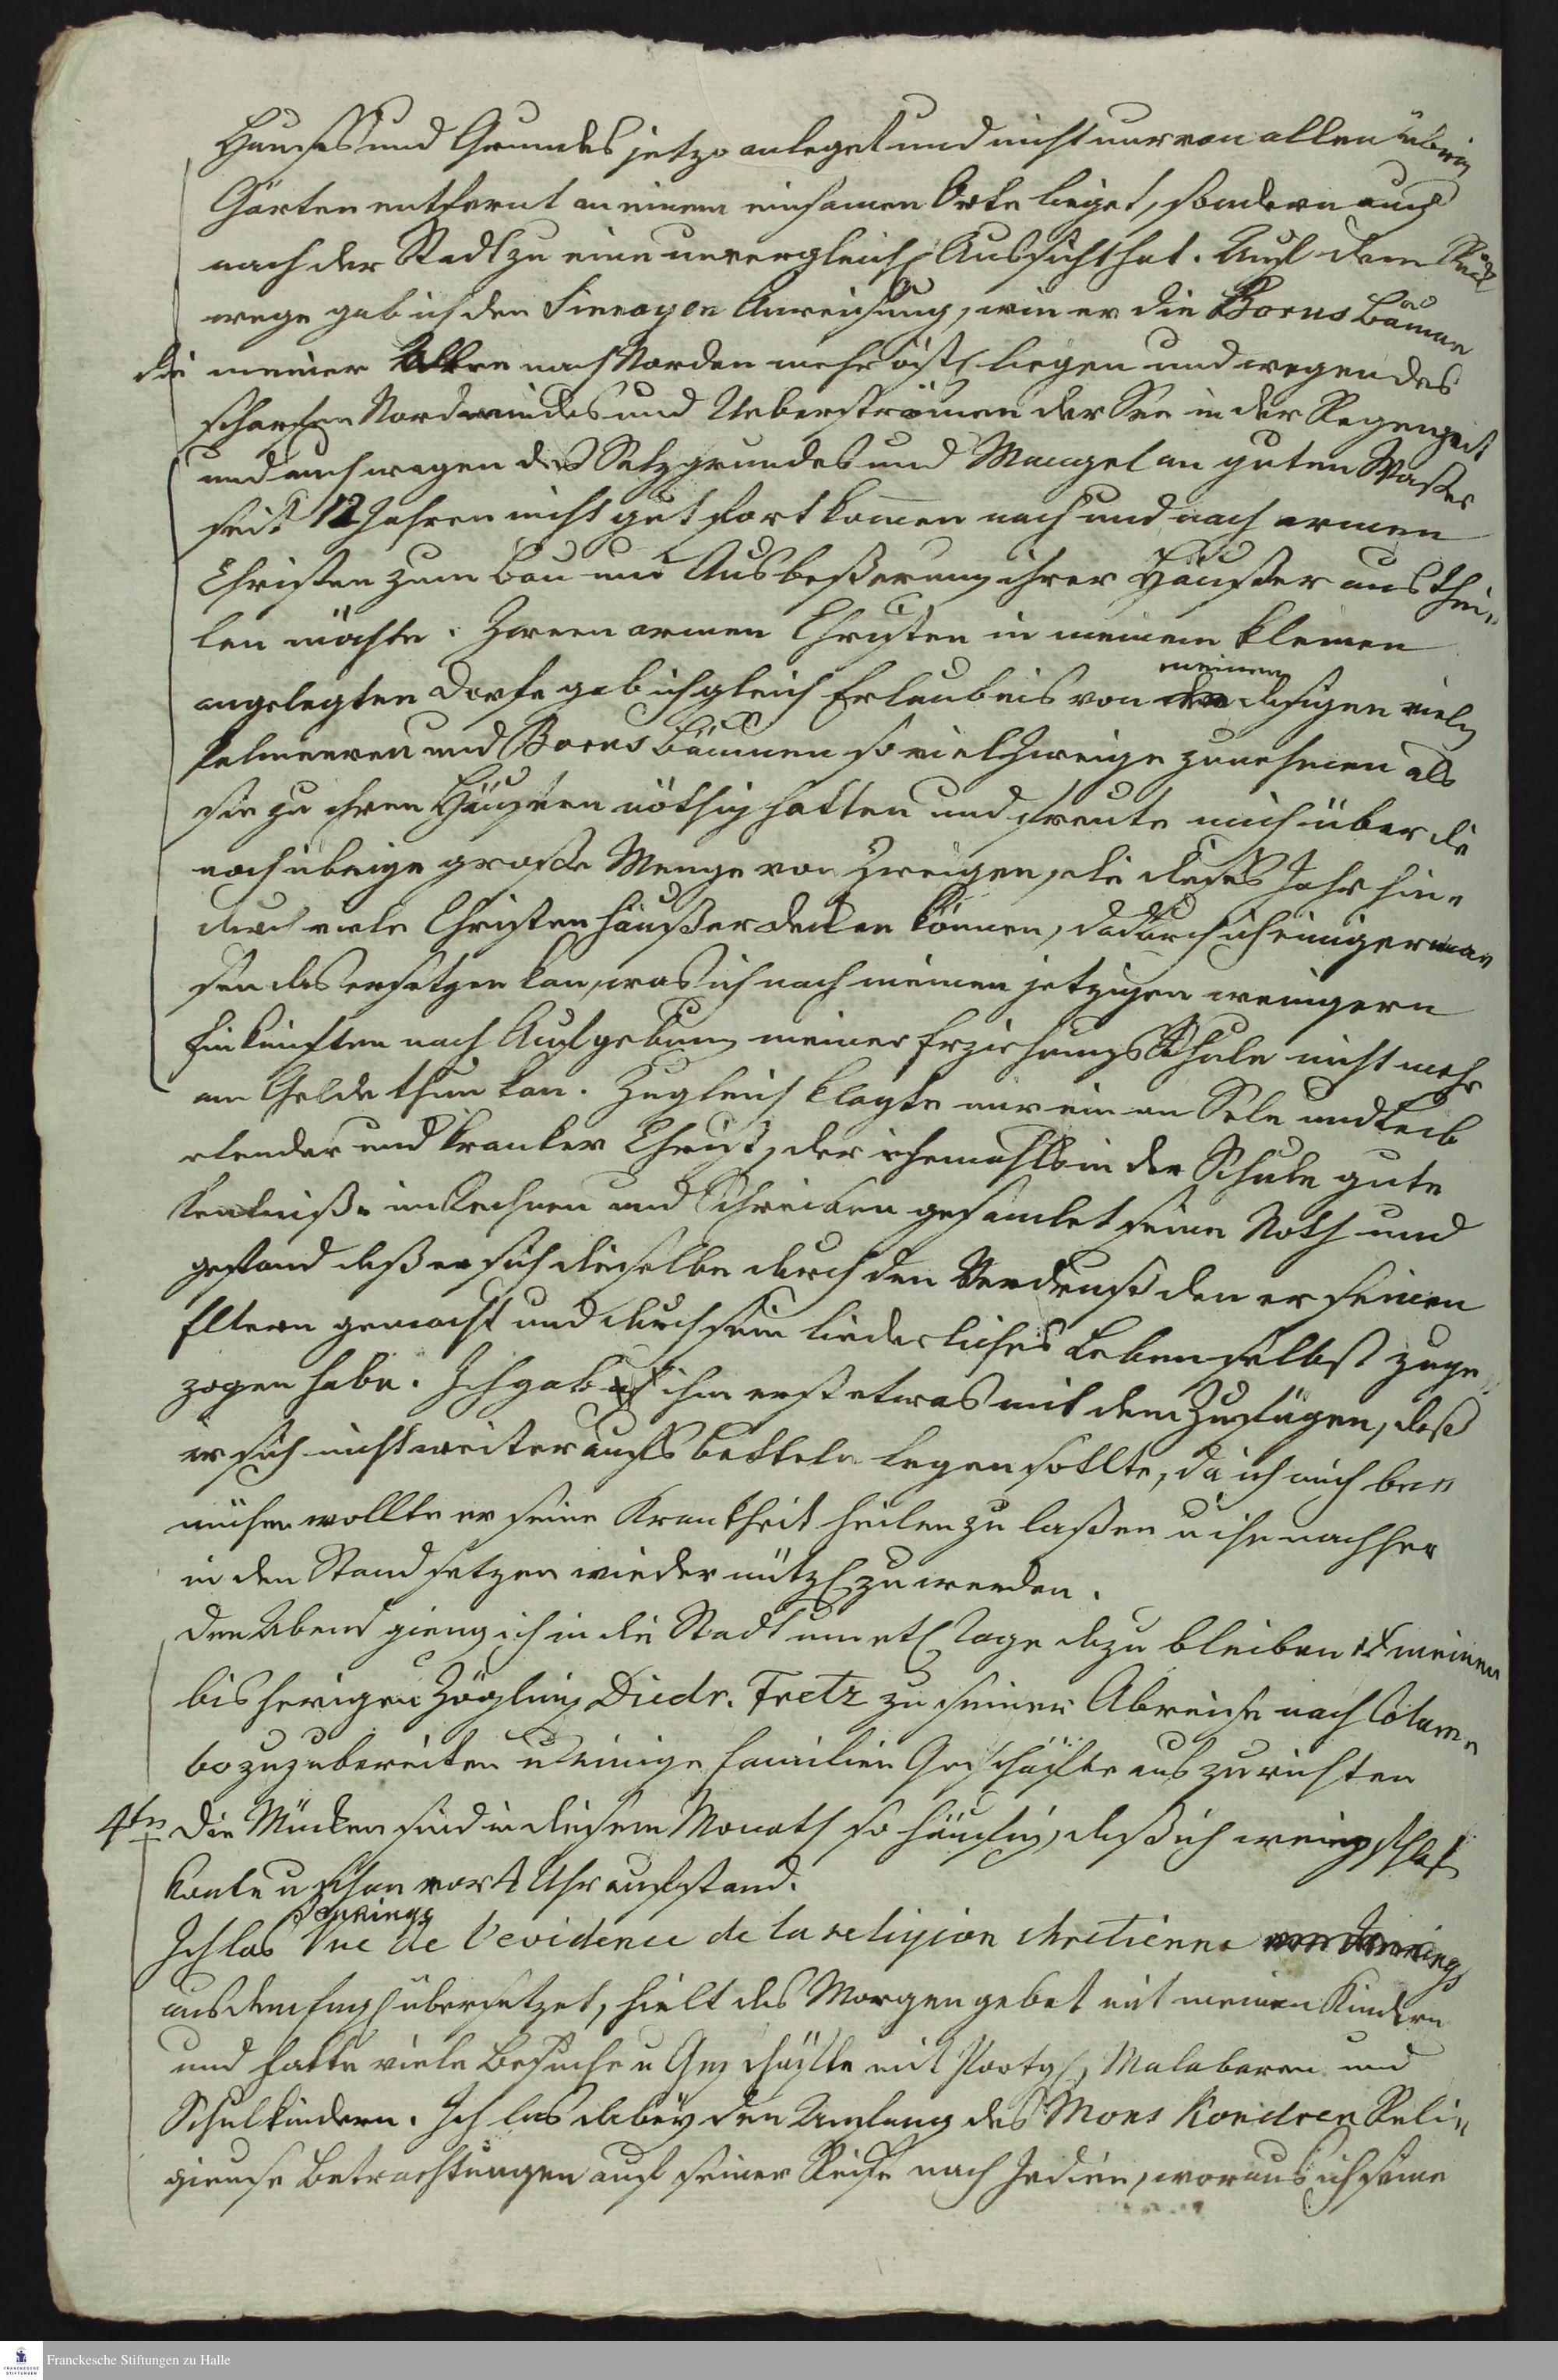 Haußes und Grundes jetzo anleget und nicht nur von allen übrig
Gärten entfernt an einem einsamen Orte lieget, sondern auch
nach der Stadt zu eine unvergleichl Aussicht hat. Auf dem Rück
wege gab ich den Sinnayen Anweisung, wie er die Borus Bäume
die meiner nach Norden mehr östl liegen und wegen des
scharfen Nordwindes und Ueberströmen der See in der Regenzeit
und auch wegen des Salzgrundes und Mangel an guten Waßer
seit 12 Jahren nicht gut fort komen nach und nach armen
Christen zum Bau und Ausbeßerung ihrer Häußer aus thei„
len möchte. Zween armen Christen in meinem kleinen
meinen
angelegten Dorfe gab ich gleich Erlaubnis von diesigen vieln
Palmeeren und Borus Bäumen so viel Zweige zu nehmen als
sie zu ihren Häusern nöthig hatten und freute mich über die
noch übrige große Menge von Zweigen, die dieses Jahr hin„
durch viele Christen häußer decken können, dadurch ich einigermas
sen das ersetzen kan, was ich nach meinen jetzigen wenigern
Einkünften nach Aufgebung meiner Erziehungs Schule nicht mehr
am Gelde thun kan. Zugleich klagte mir ein an Sele und Leib
elender und kranker Christ, der ehemahls in der Schule gute
Kentniße im Rechnen und Schreiben gesamlet seine Noth und
gestand daß er sich dieselbe durch den Verdruß den er seinen
Eltern gemacht und durch sein liederliches Leben selbst zuge„
zogen habe. Ich gab ihm erst etwas mit dem Zufügen, daß
er sich nicht weiter aufs betteln legen sollte, da ich mich be„
mühen wollte er seine Krankheit heilen zu laßen u ihn nachher
in den Stand setzen wieder nützl zu werden.
Den Abend gieng ich in die Stadt um etl Tage dazu bleiben meinen
bisherigen Zögling Diedr. Fretz zu seiner Abreise nach Colum„
bo zuzubereiten u einige familien Geschäfte auszurichten
4tn Die Mücken sind in diesem Monath so häufig, daß ich wenig schlaf
konte u schon vor 4 Uhr aufstand.
Jennings
Ich las Vue de l'evidence de la religion chretienne von Jennings
aus dem Engl übersetzet, hielt das Morgengebet mit meinen Kindern
und hatte viele Besuche u Geschäfte mit Portg, Malabaren und
Schulkindern. Ich las dabey den Anfang des Mons Kondren Reli„
gieuse Betrachtungen auf seiner Reise nach Indien, woraus ich seine
Franckesche Stiftungen zu Halle